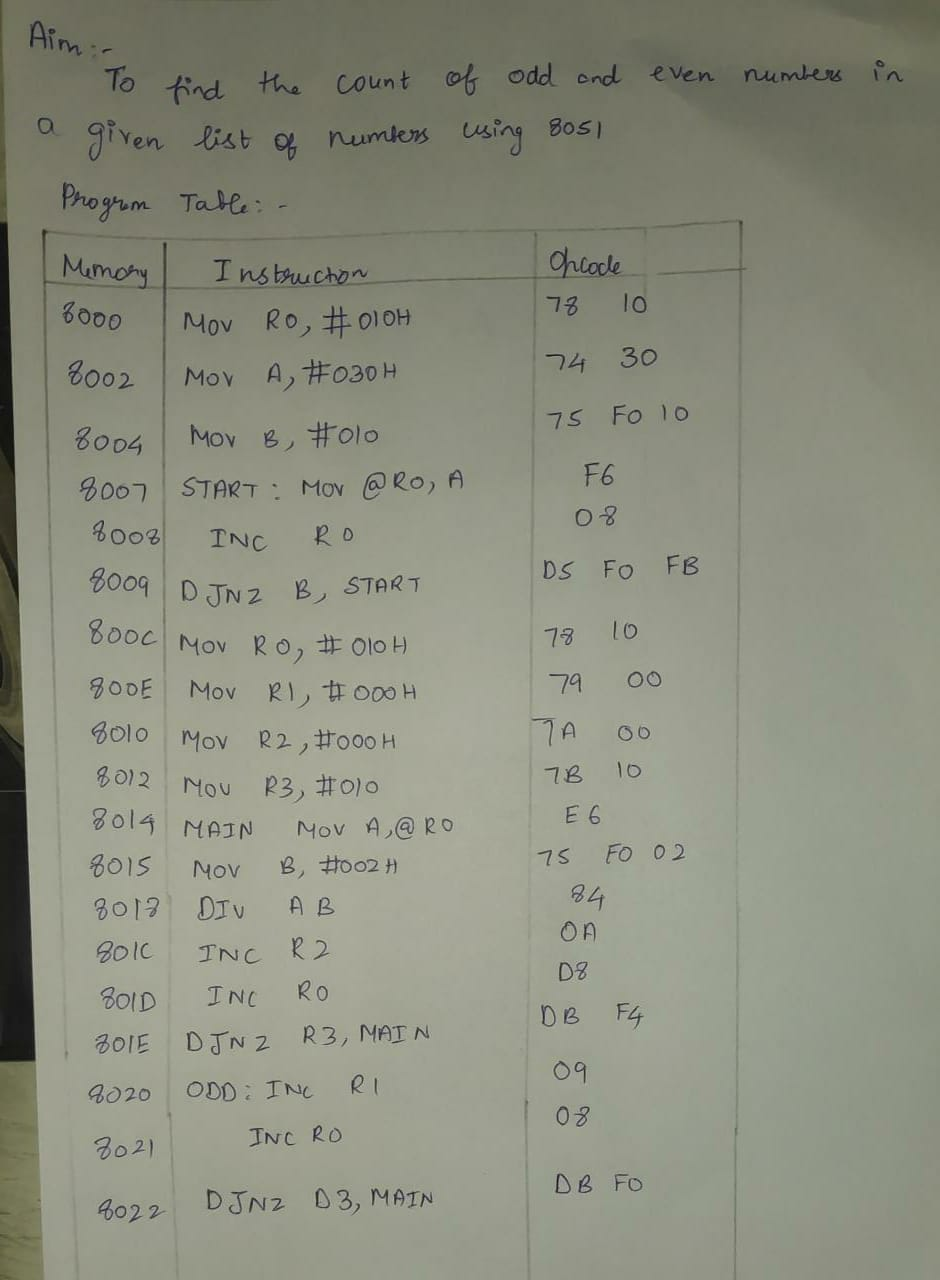 Aim :-
To find the count of odd and even numbers in
a given list of numbers using 8051
Program Table : -
Memory Instruction Opcode
8000 Mov R0, #010H 78 10
8002 Mov A, #030H 74 30
8004 Mov B, #010 75 F0 10
8007 START : Mov @R0, A F6
8008 INC R0 08
8009 DJNZ B, START D5 F0 FB
800C Mov R0, #010H 78 10
800E Mov R1, #000H 79 00
8010 Mov R2, #000H 7A 00
8012 Mov R3, #010 7B 10
8014 MAIN Mov A,@R0 E6
8015 Mov B, #002H 75 F0 02
8018 DIV AB 84
801C INC R2 0A
801D INC R0 D8
801E DJNZ R3, MAIN DB F4
8020 ODD : INC R1 09
8021 INC R0 08
8022 DJNZ D3, MAIN DB F0